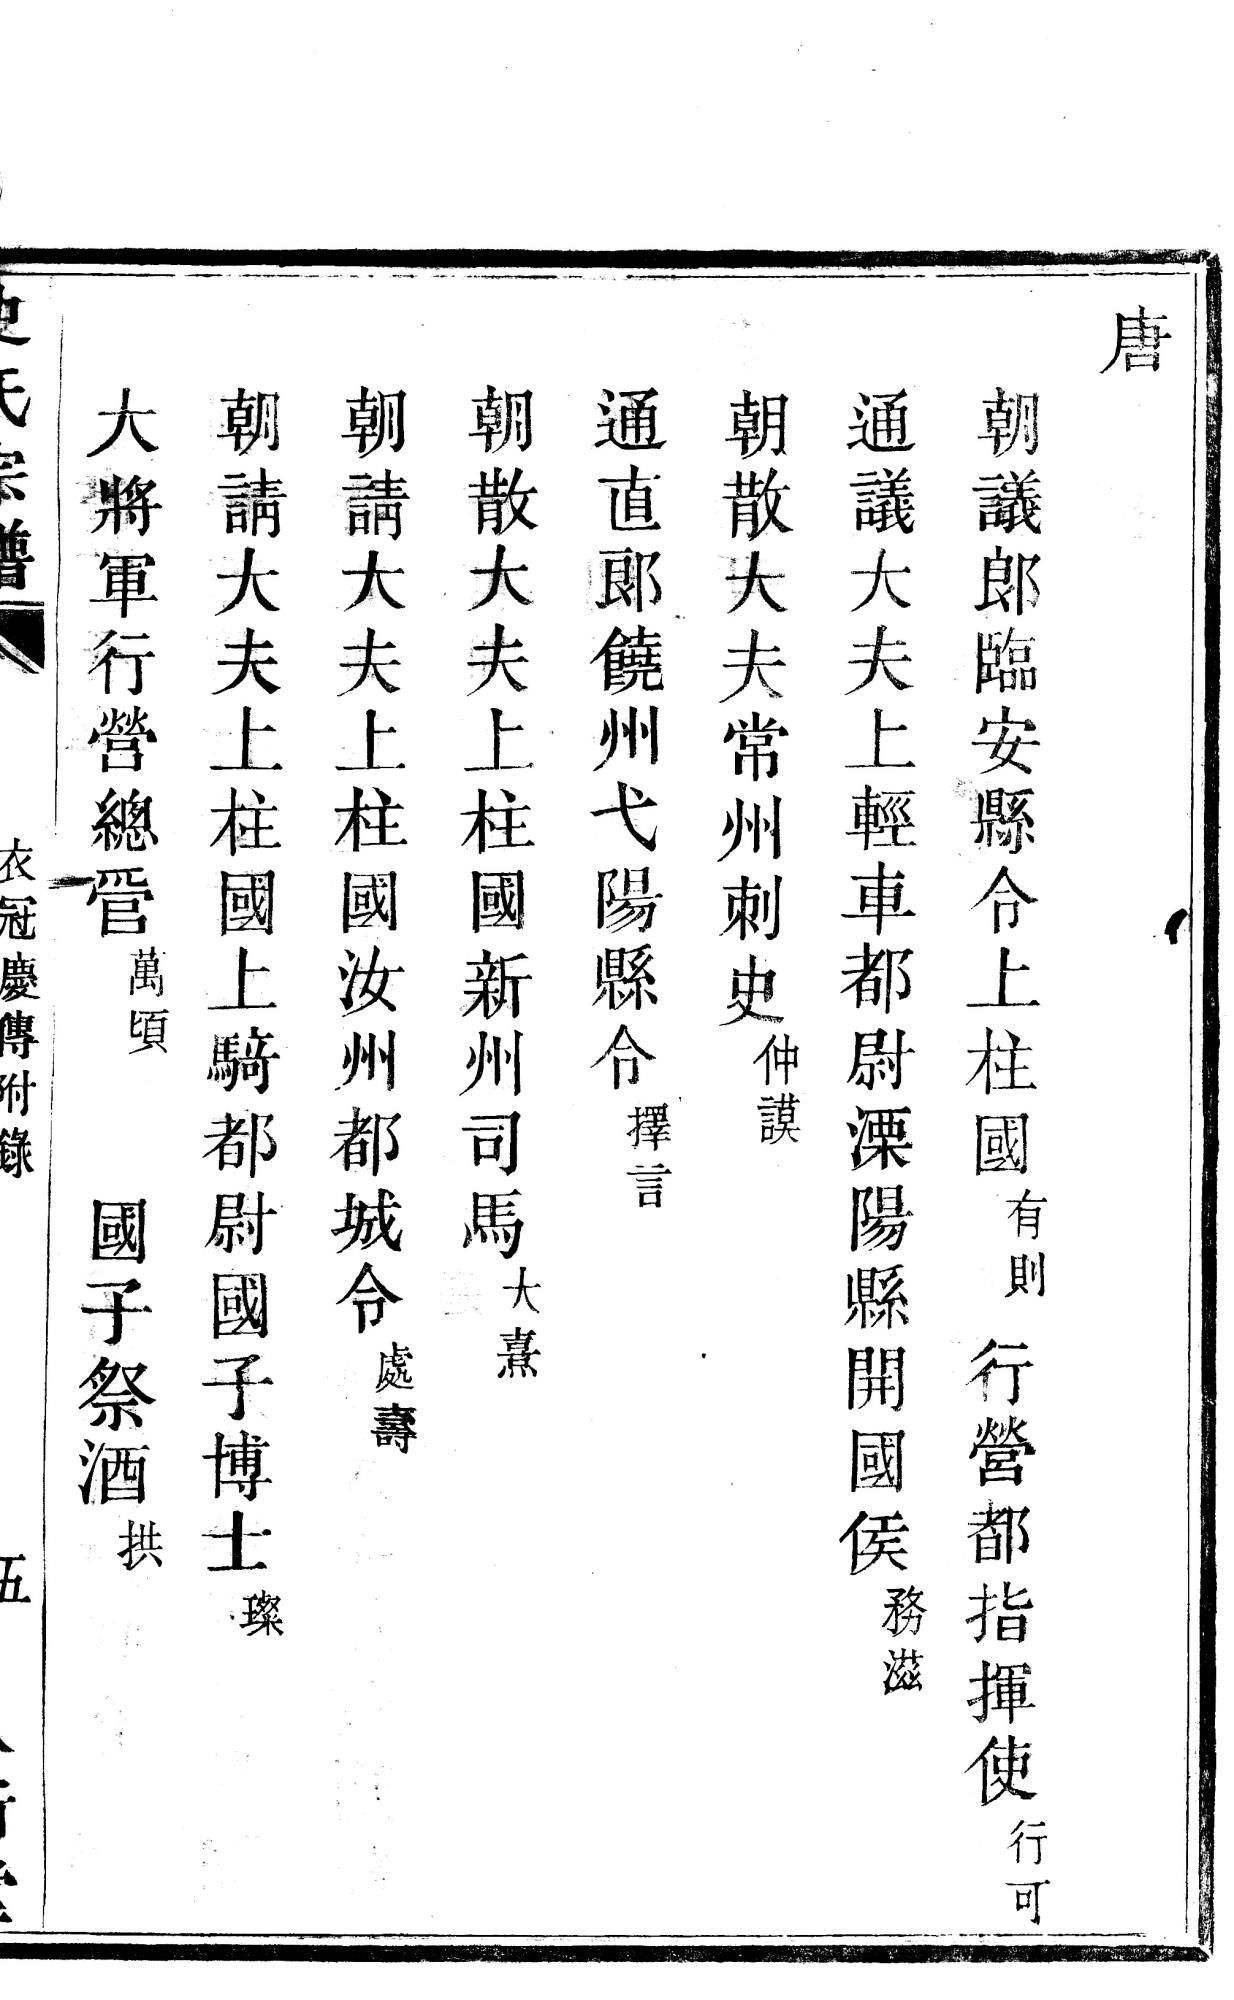 唐
朝議郎臨安縣令上柱國 有則 行營都指揮使 行可
通議大夫上輕車都尉溧陽縣開國侯 務滋
朝散大夫常州刺史 仲謨
通直郎饒州弋陽縣令 擇言
朝散大夫上柱國新州司馬 大熹
朝請大夫上柱國汝州都城令 處壽
朝請大夫上柱國上騎都尉國子博士 璨
大將軍行營總管 萬頃 國子祭酒 拱
史氏宗譜 衣冠慶傳附錄 伍